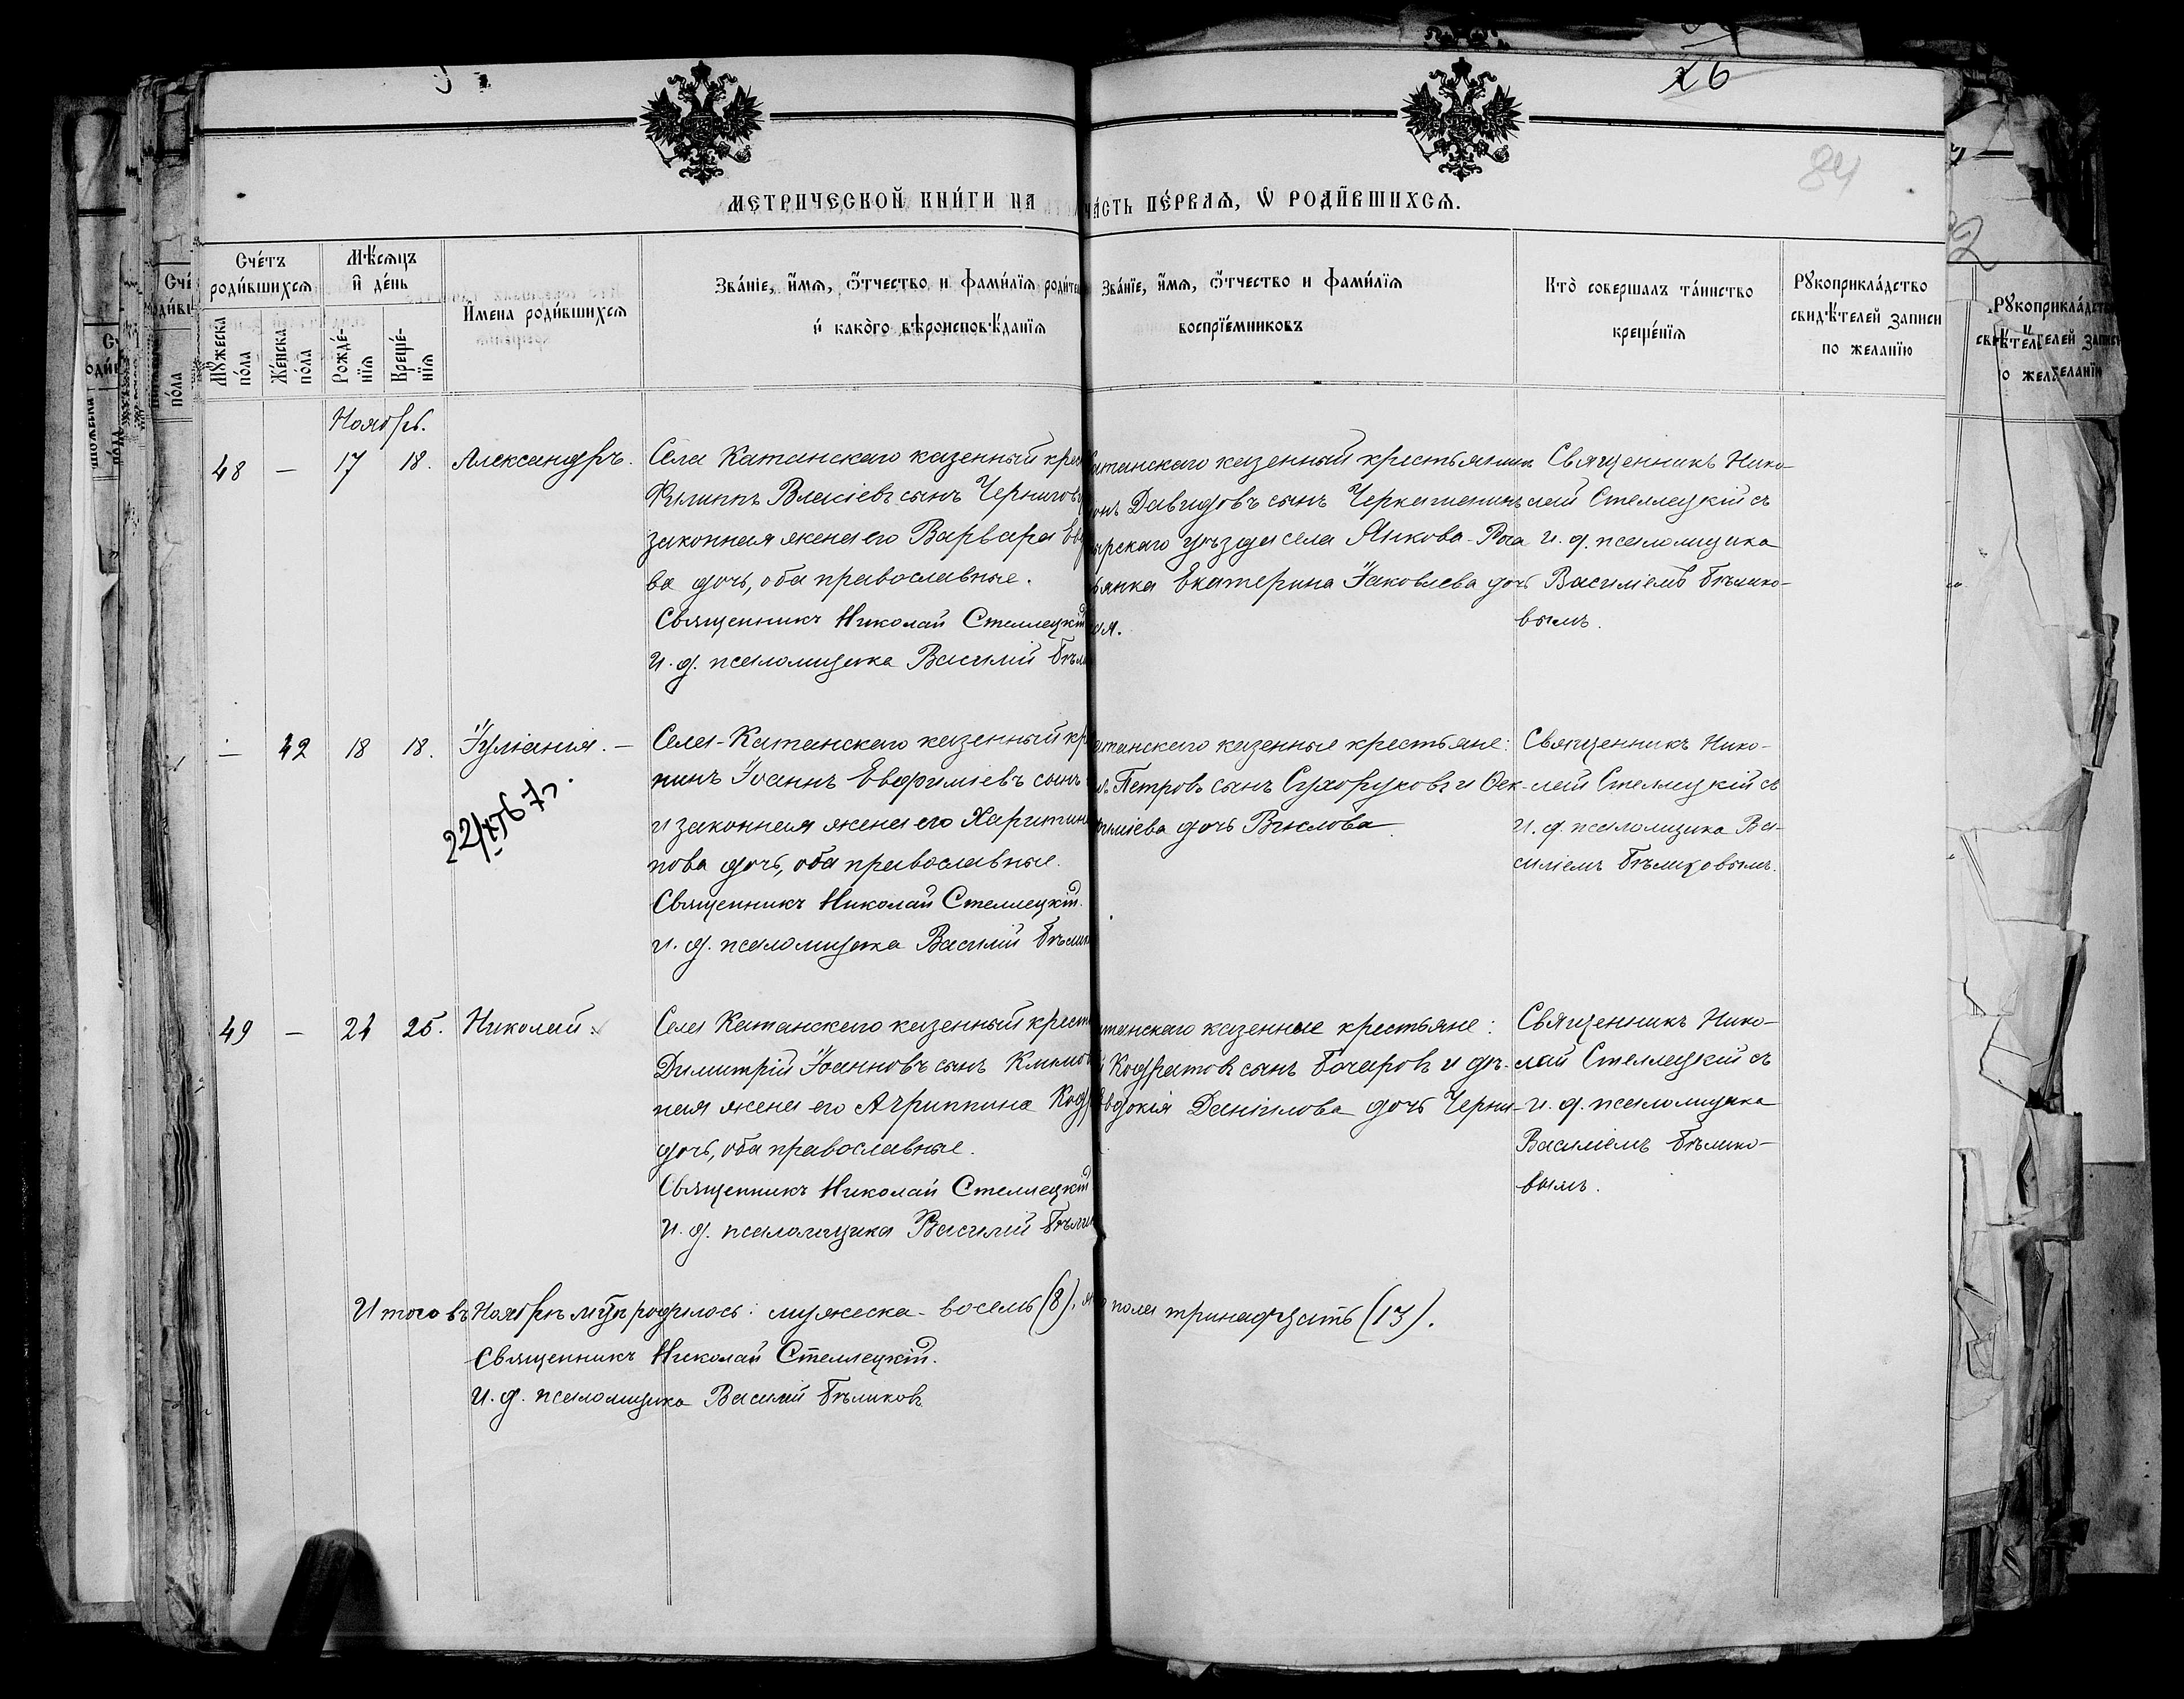 26
84
МЕТРИЧЕСКОЙ КНИ́ГИ НА
ЧА́СТЬ ПЕ́РВАѦ, Ѡ҆ РОДИ́ВШИХСѦ.
Сче́тъ роди́вшихсѧ
Мꙋ́жеска по́ла
Же́нска по́ла
Мѣ́сѧцъ и҆ де́нь
Рожде́нїѧ
Креще́нїѧ
И҆мена роди́вшихсѧ
Зва́нїе, и҆́мѧ, ѻ҆́тчество и фами́лїѧ роди́те
и҆ како́гѡ вѣроисповѣ́данїѧ
Зва́нїе, и҆́мѧ, ѻ҆́тчество и фами́лїѧ
воспрїе́мниковъ
Кто̀ соверша́лъ та́инство
креще́нїѧ
Рꙋкоприкла́дство
свидѣ́телей записи
по жела́нїю
Ноябрь.
48 — 17 18. Александръ.
Села Катанскаго казенный крес
Филиппъ Влексіевъ сынъ Чернигов
законная жена его Варвара Ев
ва дочь, оба православные.
Священникъ Николай Стеллецкій
И. д. псаломщика Василій Бѣли
атанскаго казенный крестьянинъ
онъ Давидовъ сынъ Черкашенинъ
ярскаго уѣзда села Янкова-Рога
янка Екатерина Іаковлева дочь
ая.
Священникъ Нико-
лай Стеллецкій съ
и. д. псаломщика
Василіемъ Бѣлико-
вымъ.
— 42 18 18. Іуліанія. —
Села-Катанскаго казенный кр
нинъ Іоаннъ Евфиміевъ сынъ
и законная жена его Харитин
пова дочь, оба православные.
Священникъ Николай Стеллецкій.
и. д. псаломщика Василій Бѣлик
атанскаго казенные крестьяне:
Петровъ сынъ Сухоруковъ и Ѳек-
дочь Вислова
Священникъ Нико-
лай Стеллецкій съ
и. д. псаломщика Ва-
силіемъ Бѣликовымъ.
49 — 24 25. Николай.
Села Катанскаго казенный крест
Димитрій Іоанновъ сынъ Климов
ная жена его Агриппина Код
дочь, оба православные.
Священникъ Николай Стеллецкій
И. д. псаломщика Василій Бѣлик
танскаго казенные крестьяне:
Кодратовъ сынъ Бочаровъ и дѣ-
Евдокія Даніилова дочь Черни-
Священникъ Нико-
лай Стеллецкій съ
и. д. псаломщика
Василіемъ Бѣлико-
вымъ.
Итого въ Ноябрѣ м-цѣ родилось: мужеска - восемь (8), пола тринадцать (13).
Священникъ Николай Стеллецкій.
И. д. псаломщика Василій Бѣликовъ